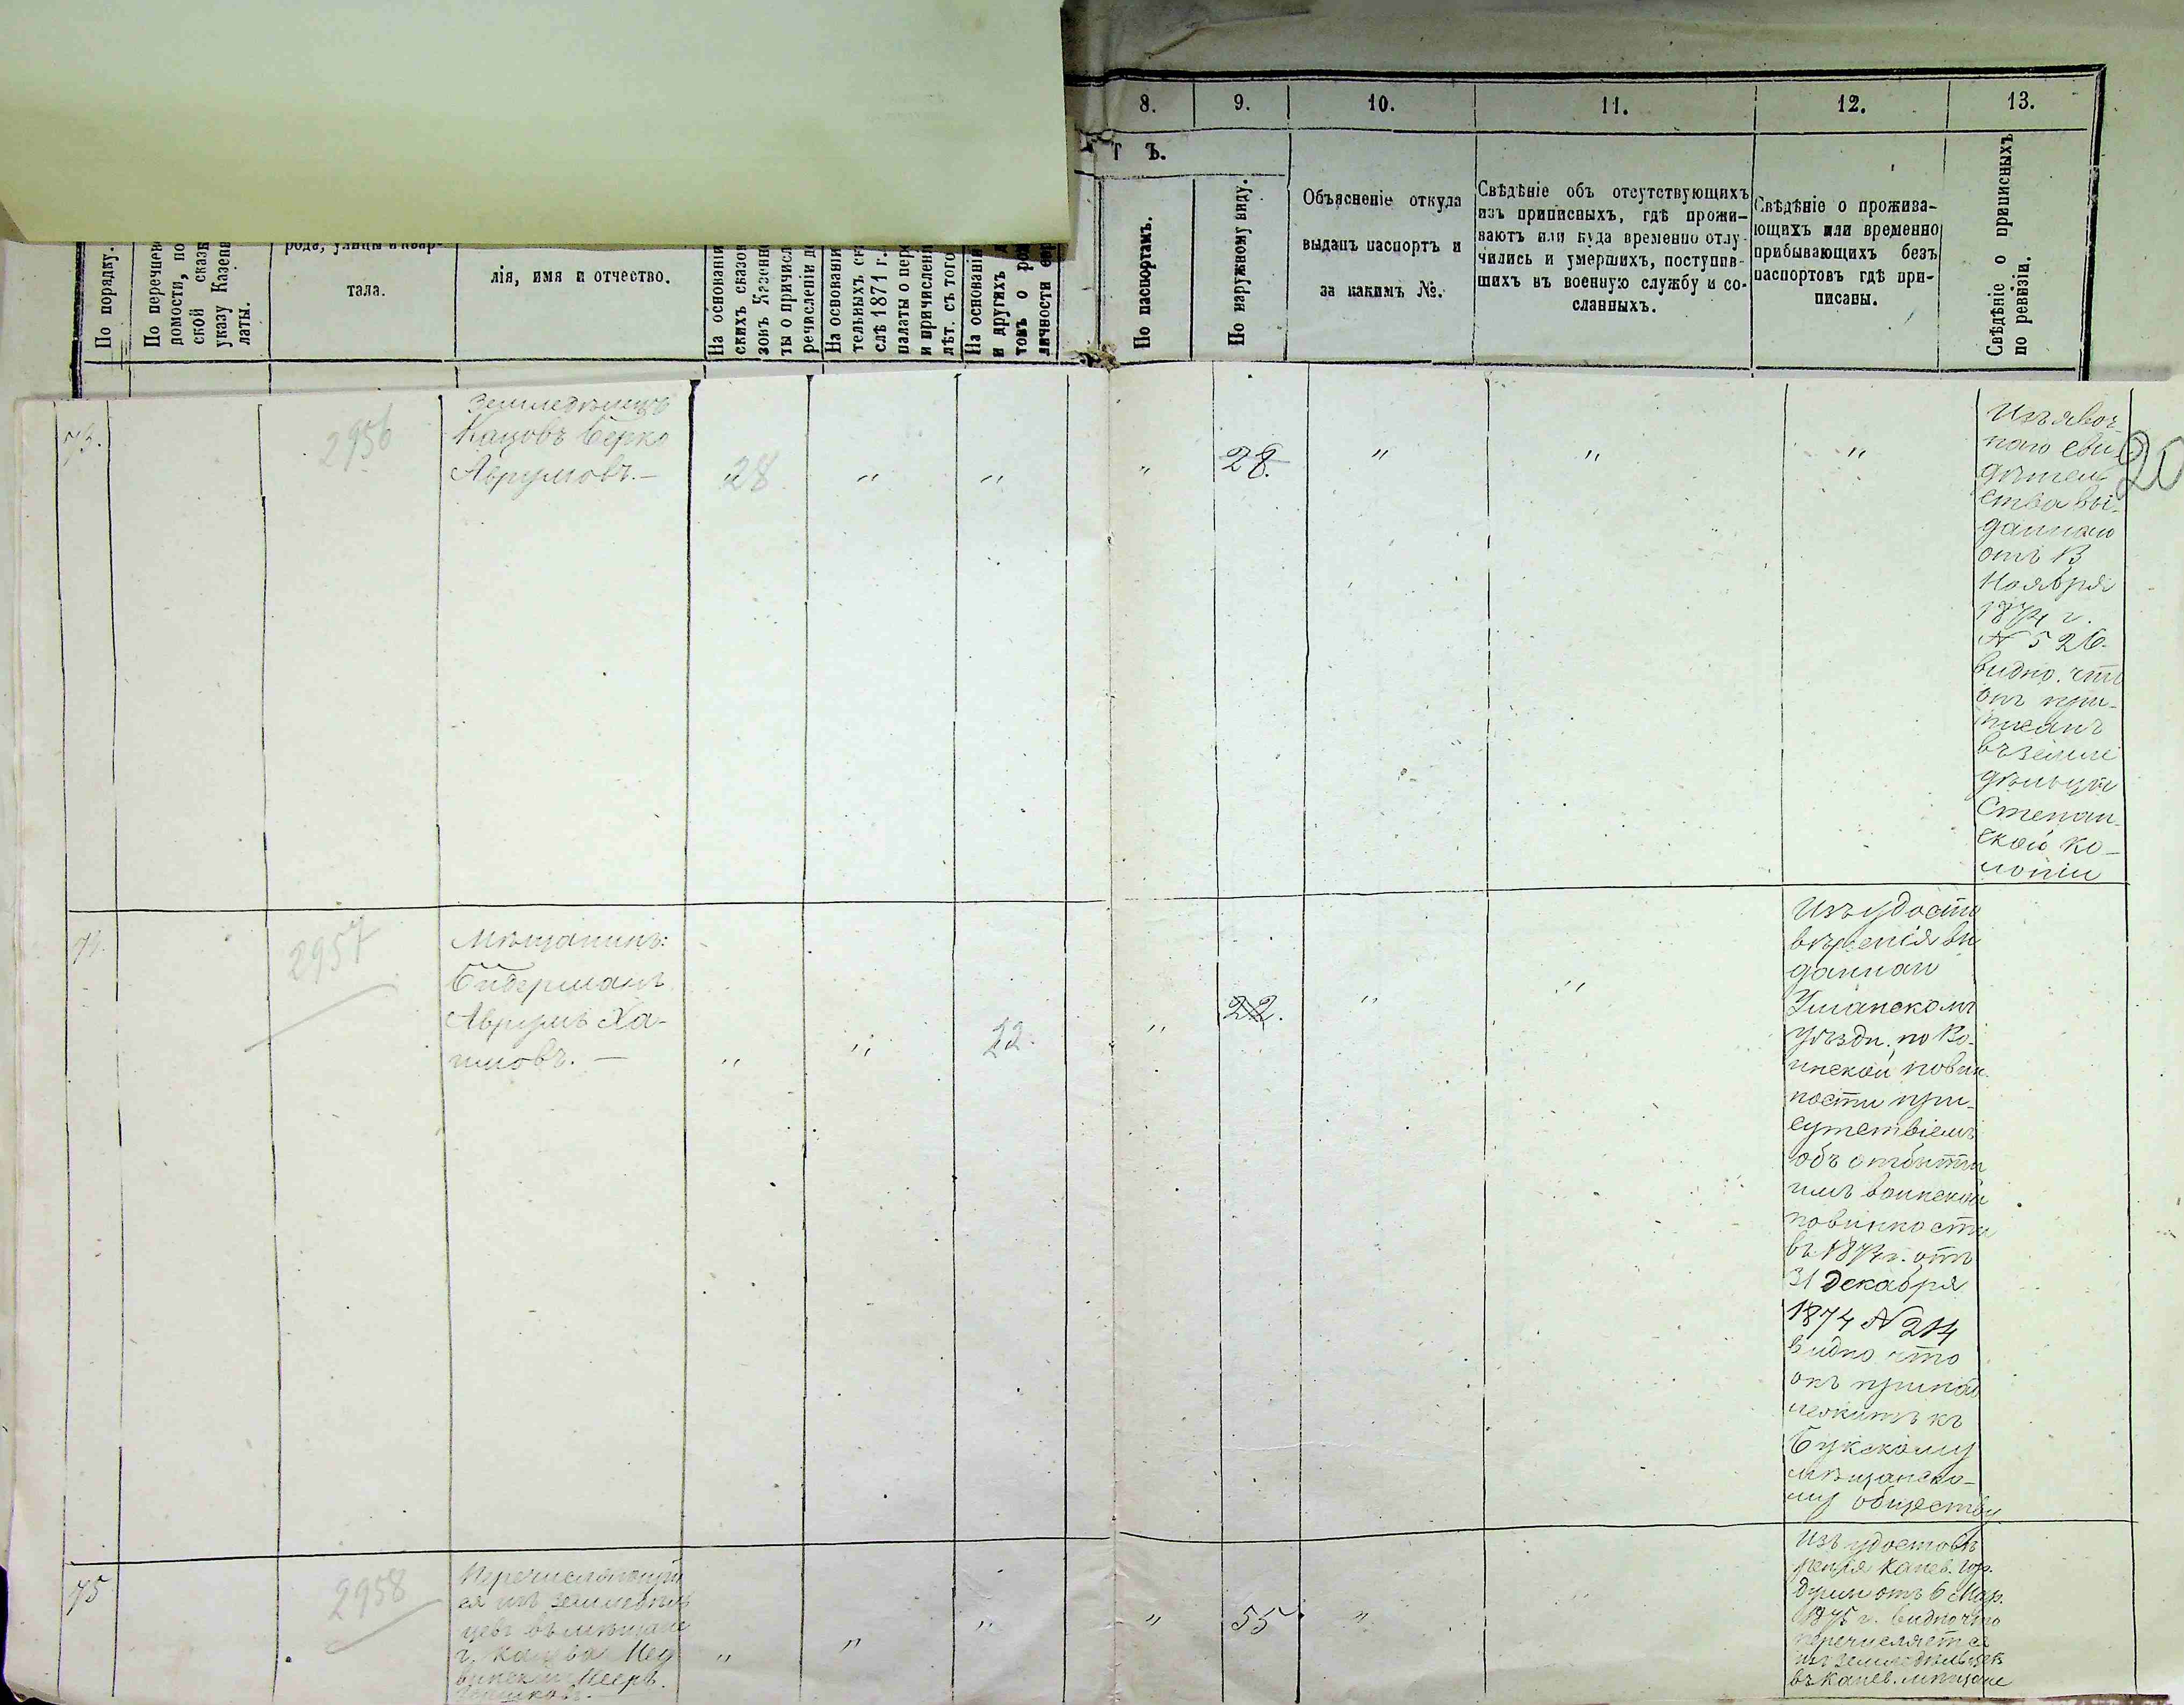 8. 9. 10. 11. 12. 13.
Т Ъ.
По порядку.
По перечнев
домости, по
ской сказк
указу Казенн
латы.
рода, улицы и квар-
тала.
лія, имя и отчество.
На основаніи
скихъ сказок
зокъ Казенно
ты о причисл
речисленіи до
На основаніи
тельныхъ ск
слѣ 1871 г.
палаты о пер
и причисленн
лѣт. съ того
На основаніи
и другихъ
товъ о ро
личности евр
По паспортамъ.
По наружному виду.
Объясненіе откуда
выданъ паспортъ и
за какимъ №.
Свѣдѣніе объ отсутствующихъ
изъ приписныхъ, гдѣ прожи-
ваютъ или куда временно отлу-
чились и умершихъ, поступив-
шихъ въ военную службу и со-
сланныхъ.
Свѣдѣніе о прожива-
ющихъ или временно
прибывающихъ безъ
паспортовъ гдѣ при-
писаны.
Свѣдѣніе о приписныхъ
по ревизіи.
73.
2956
Земледѣлецъ
Кацовъ Берко
Аврумовъ. —
28 " "
" 28. " " "
Изъ явоч-
наго сви-
дѣтель
ства вы-
даннаго
отъ 13
Ноября
1874 г.
№ 526.
видно. что
онъ при-
писанъ
въ земле
дѣльцы
Степан-
ской ко-
лоніи
20
74.
2957
Мѣщанинъ:
Бидерманъ
Аврумъ Ха-
имовъ. —
" " 22.
" 22. " "
Изъ удосто
вѣренія вы
даннаго
Уманскомъ
уѣздн. по Во-
инской повин-
ности при-
сутствіемъ
объ отбытіи
имъ воинской
повинности
въ 1874 г. отъ
31 Декабря
1874 № 214
видно что
онъ принад
лежитъ къ
Букскому
мѣщанско-
му обществу
75
2958
Перечисляющій
ся изъ земледѣль
цевъ въ мѣщане
г. Канева
" " "
" 55 "
Изъ удостовѣ
ренія Канев. гор.
думы отъ 6 Мар.
1875 г. видно что
перечисляется
изъ земледѣльцевъ
въ Канев. мѣщане